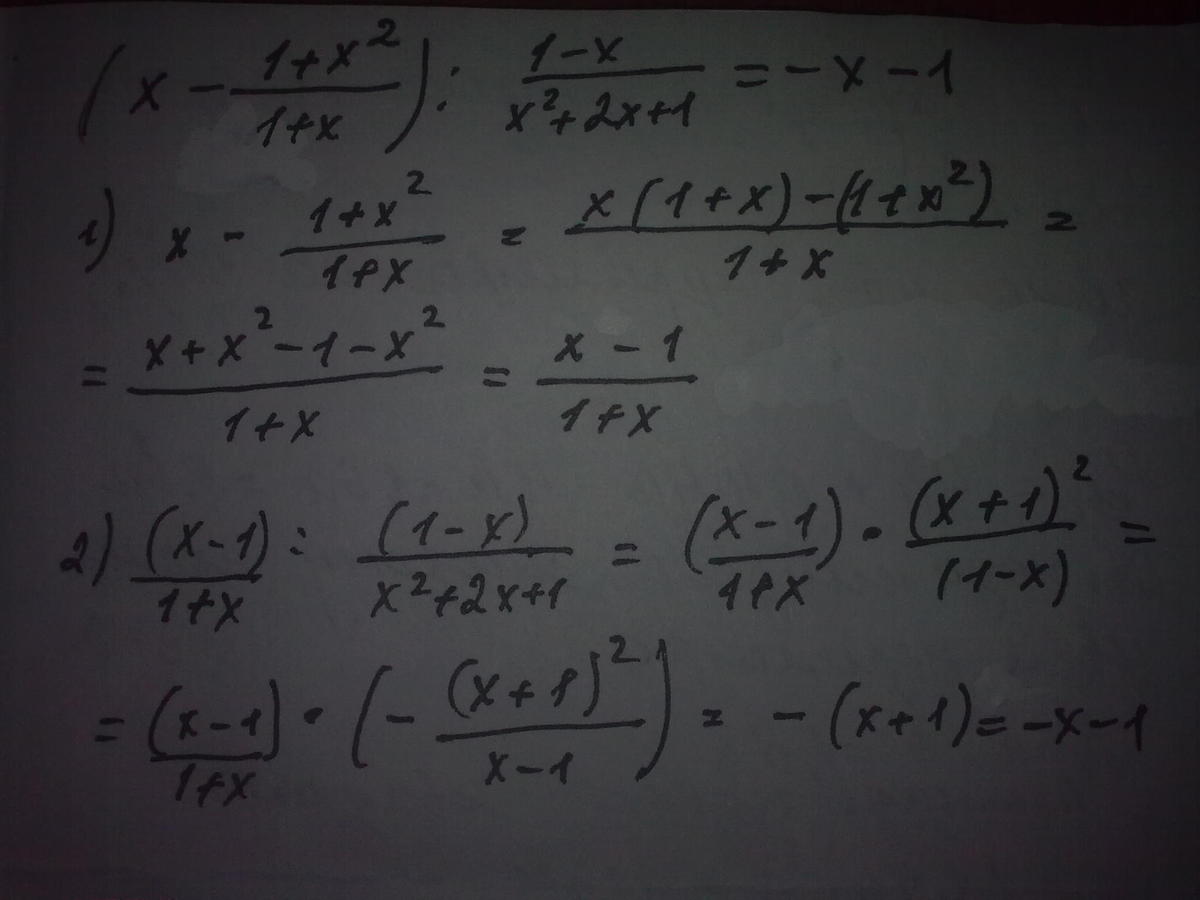 (x - \frac{1+x^2}{1+x}) : \frac{1-x}{x^2+2x+1} = -x-1
1) x - \frac{1+x^2}{1+x} = \frac{x(1+x)-(1+x^2)}{1+x} =
= \frac{x+x^2-1-x^2}{1+x} = \frac{x-1}{1+x}
2) \frac{(x-1)}{1+x} : \frac{(1-x)}{x^2+2x+1} = \frac{(x-1)}{1+x} \cdot \frac{(x+1)^2}{(1-x)} =
= \frac{(x-1)}{1+x} \cdot (-\frac{(x+1)^2}{x-1}) = -(x+1) = -x-1